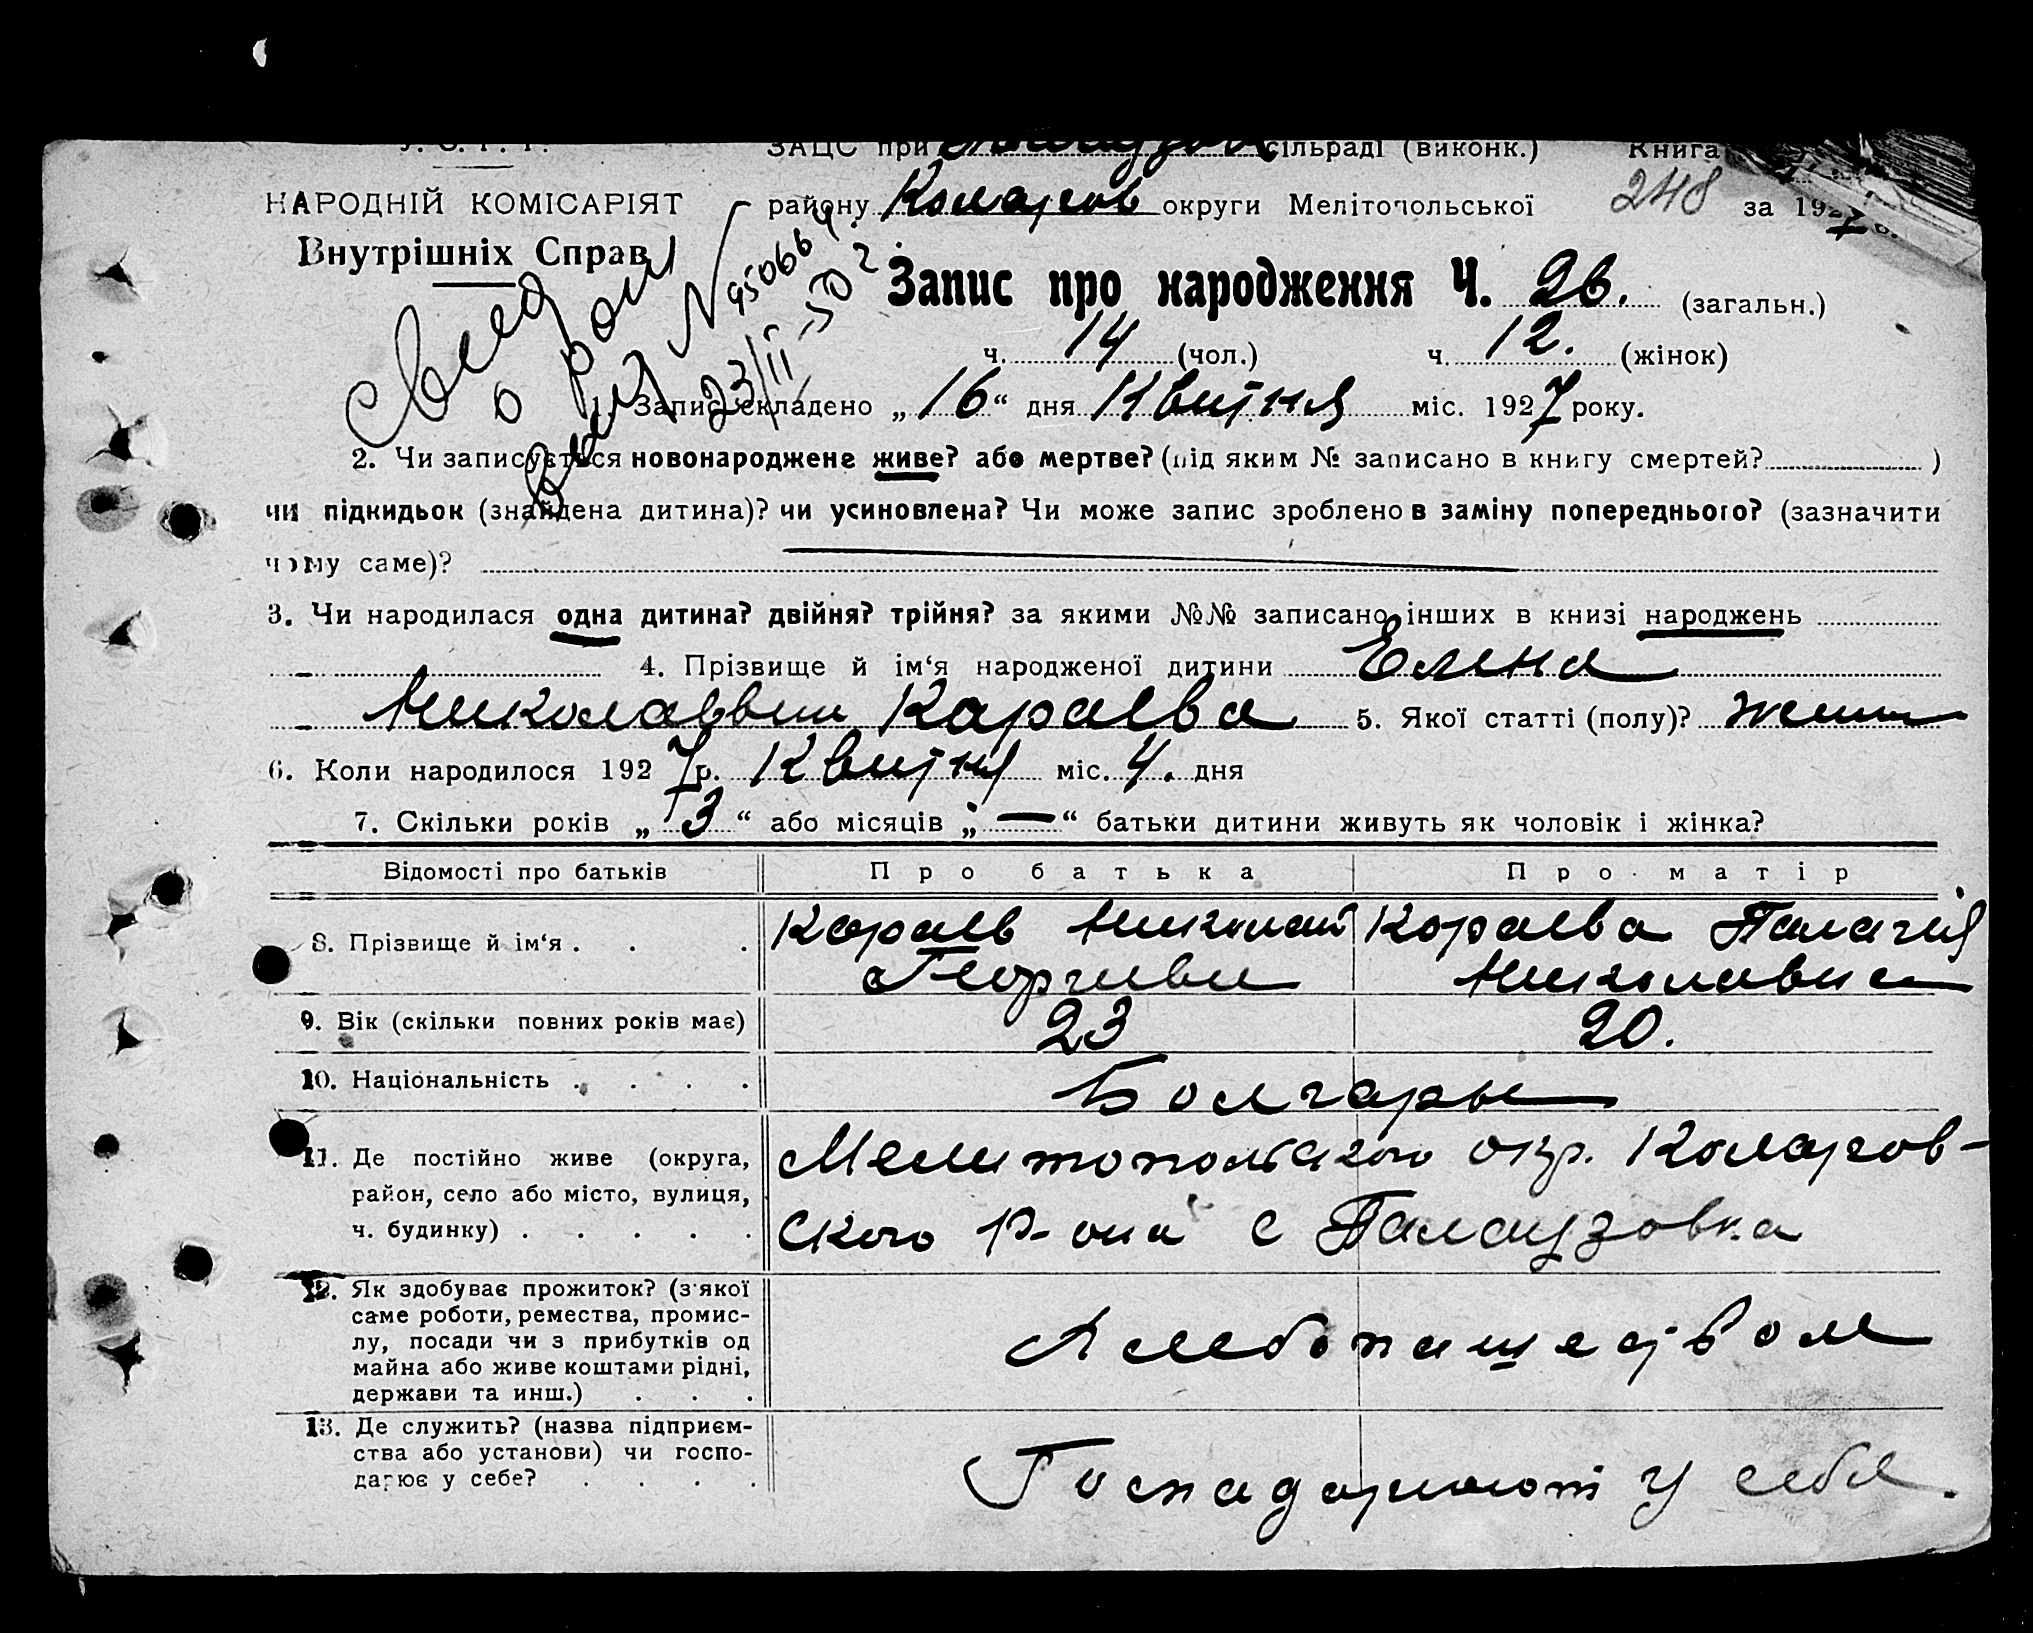 У. С. Р. Р.
ЗАЦС при сільраді (виконк.) Книга
НАРОДНІЙ КОМІСАРІЯТ
району Коларов округи Мелітопольської 248 за 1927
Внутрішніх Справ
Запис про народження Ч. 26. (загальн.)
ч. 14 (чол.) ч. 12. (жінок)
Свид
о рож
выд № 450664
23/II-50 г.
Запис складено „16“ дня Квитня міс. 1927 року.
2. Чи записується новонароджене живе? або мертве? (під яким № записано в книгу смертей? )
чи підкидьок (знайдена дитина)? чи усиновлена? Чи може запис зроблено в заміну попереднього? (зазначити
чому саме)?
3. Чи народилася одна дитина? двійня? трійня? за якими №№ записано інших в книзі народжень
4. Прізвище й ім‘я народженої дитини Елена
Караева 5. Якої статті (полу)?
6. Коли народилося 1927 р. Квитня міс. 4. дня
7. Скільки років „3“ або місяців „—“ батьки дитини живуть як чоловік і жінка?
Відомості про батьків Про батька Про матір
8. Прізвище й ім‘я . . . Караев Николай Караева Палагия
9. Вік (скільки повних років має) 23 20.
10. Національність . . . . Болгары
11. Де постійно живе (округа, район, село або місто, вулиця, ч. будинку) . . . . . Мелитопольского окр. Коларов-
ского р-она с Палаузовка
12. Як здобуває прожиток? (з якої
саме роботи, ремества, промис-
лу, посади чи з прибутків од
майна або живе коштами рідні,
держави та инш.) . . . Хлебопашеством
13. Де служить? (назва підприєм-
ства або установи) чи госпо-
дарює у себе? . . . . Господарюют у себя.